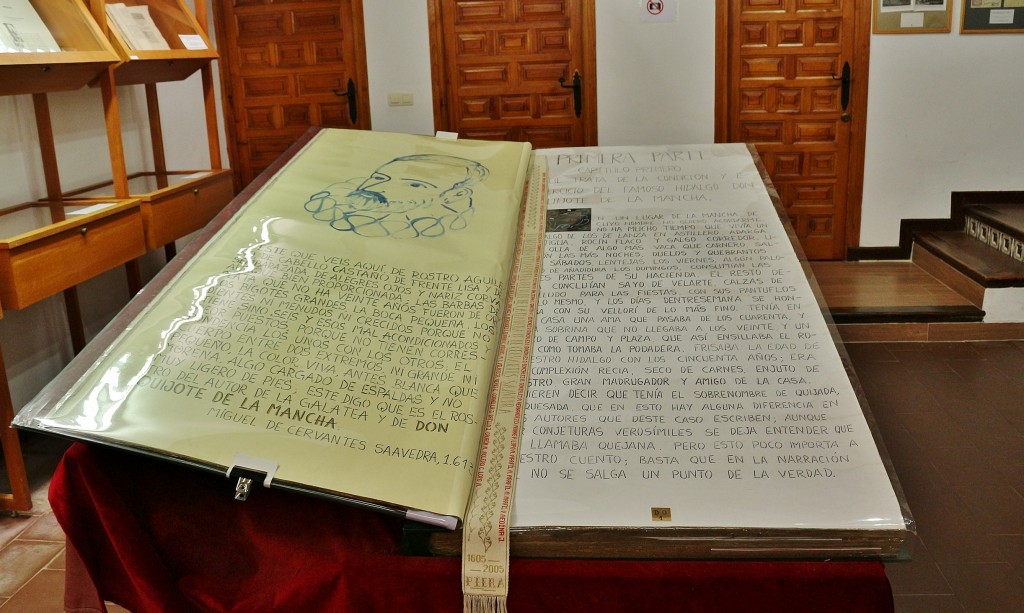 ESTE QUE VEIS AQUÍ, DE ROSTRO AGUI
CABELLO CASTAÑO, DE FRENTE LISA
NARIZ CORVA
PROPORCIONADA, LAS BARBAS DE
QUE NO HA VEINTE AÑOS FUERON DE O
BIGOTES GRANDES, LA BOCA PEQUEÑA, LOS
MENUDOS NI CRECIDOS, PORQUE NO
SINO SEIS, Y ESOS MAL ACONDICIONADOS Y
PUESTOS, PORQUE NO TIENEN CORRES-
UNOS CON LOS OTROS, EL
ENTRE DOS EXTREMOS, NI GRANDE NI
PEQUEÑO, LA COLOR VIVA, ANTES BLANCA QUE
MORENA, ALGO CARGADO DE ESPALDAS Y NO
MUY LIGERO DE PIES. ESTE DIGO QUE ES EL ROS-
TRO DEL AUTOR DE LA GALATEA Y DE DON
QUIJOTE DE LA MANCHA
MIGUEL DE CERVANTES SAAVEDRA, 1.61
PRIMERA PARTE
CAPÍTULO PRIMERO
QUE TRATA DE LA CONDICIÓN Y E
ERCICIO DEL FAMOSO HIDALGO DON
QUIJOTE DE LA MANCHA.
N UN LUGAR DE LA MANCHA DE
CUYO NOMBRE NO QUIERO ACORDARME
NO HA MUCHO TIEMPO QUE VIVÍA UN
ALGO DE LOS DE LANZA EN ASTILLERO, ADARGA
TIGUA, ROCÍN FLACO Y GALGO CORREDOR. U
OLLA DE ALGO MÁS VACA QUE CARNERO, SAL
ÓN LAS MÁS NOCHES, DUELOS Y QUEBRANTOS
SÁBADOS, LENTEJAS LOS VIERNES, ALGÚN PALO-
NO DE AÑADIDURA LOS DOMINGOS, CONSUMÍAN LAS
ES PARTES DE SU HACIENDA. EL RESTO DE-
CONCLUÍAN SAYO DE VELARTE, CALZAS DE
LUDO PARA LAS FIESTAS CON SUS PANTUFLOS
LO MESMO, Y LOS DÍAS DENTRESEMANA SE HON-
CON SU VELLORÍ DE LO MÁS FINO. TENÍA EN
CASA UNA AMA QUE PASABA DE LOS CUARENTA, Y
SOBRINA QUE NO LLEGABA A LOS VEINTE, Y UN
O DE CAMPO Y PLAZA, QUE ASÍ ENSILLABA EL RO-
COMO TOMABA LA PODADERA. FRISABA LA EDAD DE
ESTRO HIDALGO CON LOS CINCUENTA AÑOS; ERA
COMPLEXIÓN RECIA, SECO DE CARNES, ENJUTO DE
STRO GRAN MADRUGADOR Y AMIGO DE LA CASA.
IEREN DECIR QUE TENÍA EL SOBRENOMBRE DE QUIJADA,
QUESADA, QUE EN ESTO HAY ALGUNA DIFERENCIA EN
AUTORES QUE DESTE CASO ESCRIBEN; AUNQUE
CONJETURAS VEROSÍMILES SE DEJA ENTENDER QUE
LLAMABA QUEJANA. PERO ESTO POCO IMPORTA A
ESTRO CUENTO; BASTA QUE EN LA NARRACIÓN
NO SE SALGA UN PUNTO DE LA VERDAD.
1605
2005
PIERA